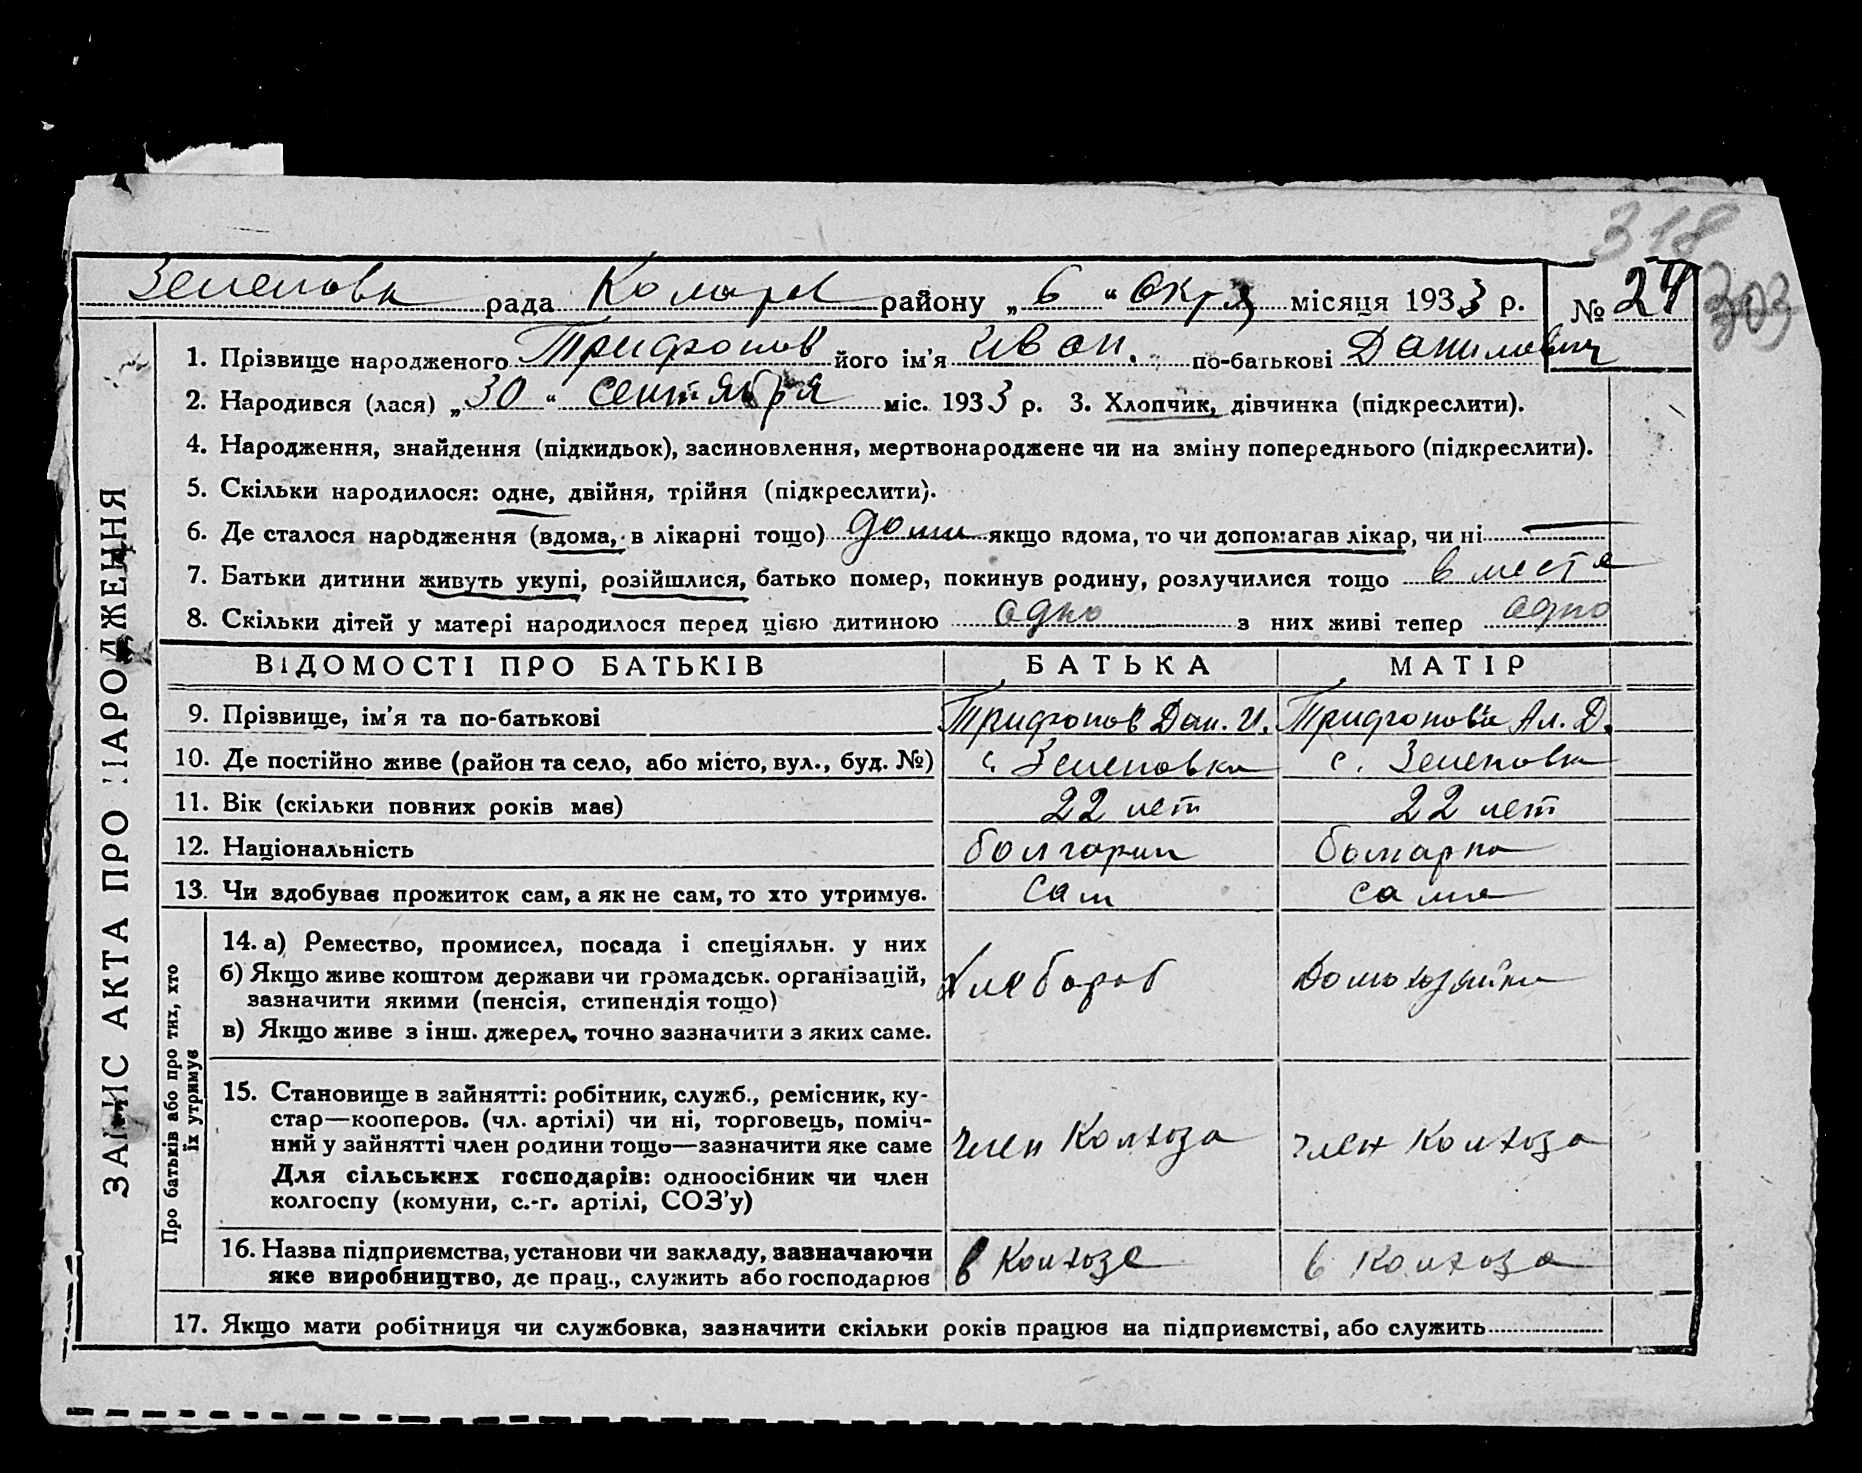 318
Зеленовк рада Комаров району „ 6 “ окт. місяця 1933 р. № 24
303
1. Прізвище народженого Трифонов його ім’я Иван. по-батькові Данилович
2. Народився (лася) „ 30 “ сентября міс. 1933 р. 3. Хлопчик, дівчинка (підкреслити).
4. Народження, знайдення (підкидьок), засиновлення, мертвонароджене чи на зміну попереднього (підкреслити).
5. Скільки народилося: одне, двійня, трійня (підкреслити).
6. Де сталося народження (вдома, в лікарні тощо) дома якщо вдома, то чи допомагав лікар, чи ні —
7. Батьки дитини живуть укупі, розійшлися, батько помер, покинув родину, розлучилися тощо вместе
8. Скільки дітей у матері народилося перед цією дитиною одно з них живі тепер одно
ВІДОМОСТІ ПРО БАТЬКІВ БАТЬКА МАТІР
9. Прізвище, ім’я та по-батькові Трифонов Дан. И. Трифонова Ал. Д.
10. Де постійно живе (район та село, або місто, вул., буд. №) с. Зеленовка с. Зеленовка
11. Вік (скільки повних років має) 22 лет 22 лет
12. Національність болгарин болгарка
13. Чи здобуває прожиток сам, а як не сам, то хто утримує. сам сама
14. а) Ремество, промисел, посада і спеціяльн. у них
б) Якщо живе коштом держави чи громадськ. організацій, Хлебороб Домохозяйка
зазначити якими (пенсія, стипендія тощо)
в) Якщо живе з інш. джерел, точно зазначити з яких саме.
15. Становище в зайнятті: робітник, служб., ремісник, ку-
стар—кооперов. (чл. артілі) чи ні, торговець, поміч-
ний у зайнятті член родини тощо—зазначити яке саме член Колхоза член Колхоза
Для сільських господарів: одноосібник чи член
колгоспу (комуни, с.-г. артілі, СОЗ’у)
16. Назва підприємства, установи чи закладу, зазначаючи
яке виробництво, де прац., служить або господарює в Колхозе в Колхозе
17. Якщо мати робітниця чи службовка, зазначити скільки років працює на підприємстві, або служить
ЗАПИС АКТА ПРО НАРОДЖЕННЯ
Про батьків або про тих, хто
їх утримує